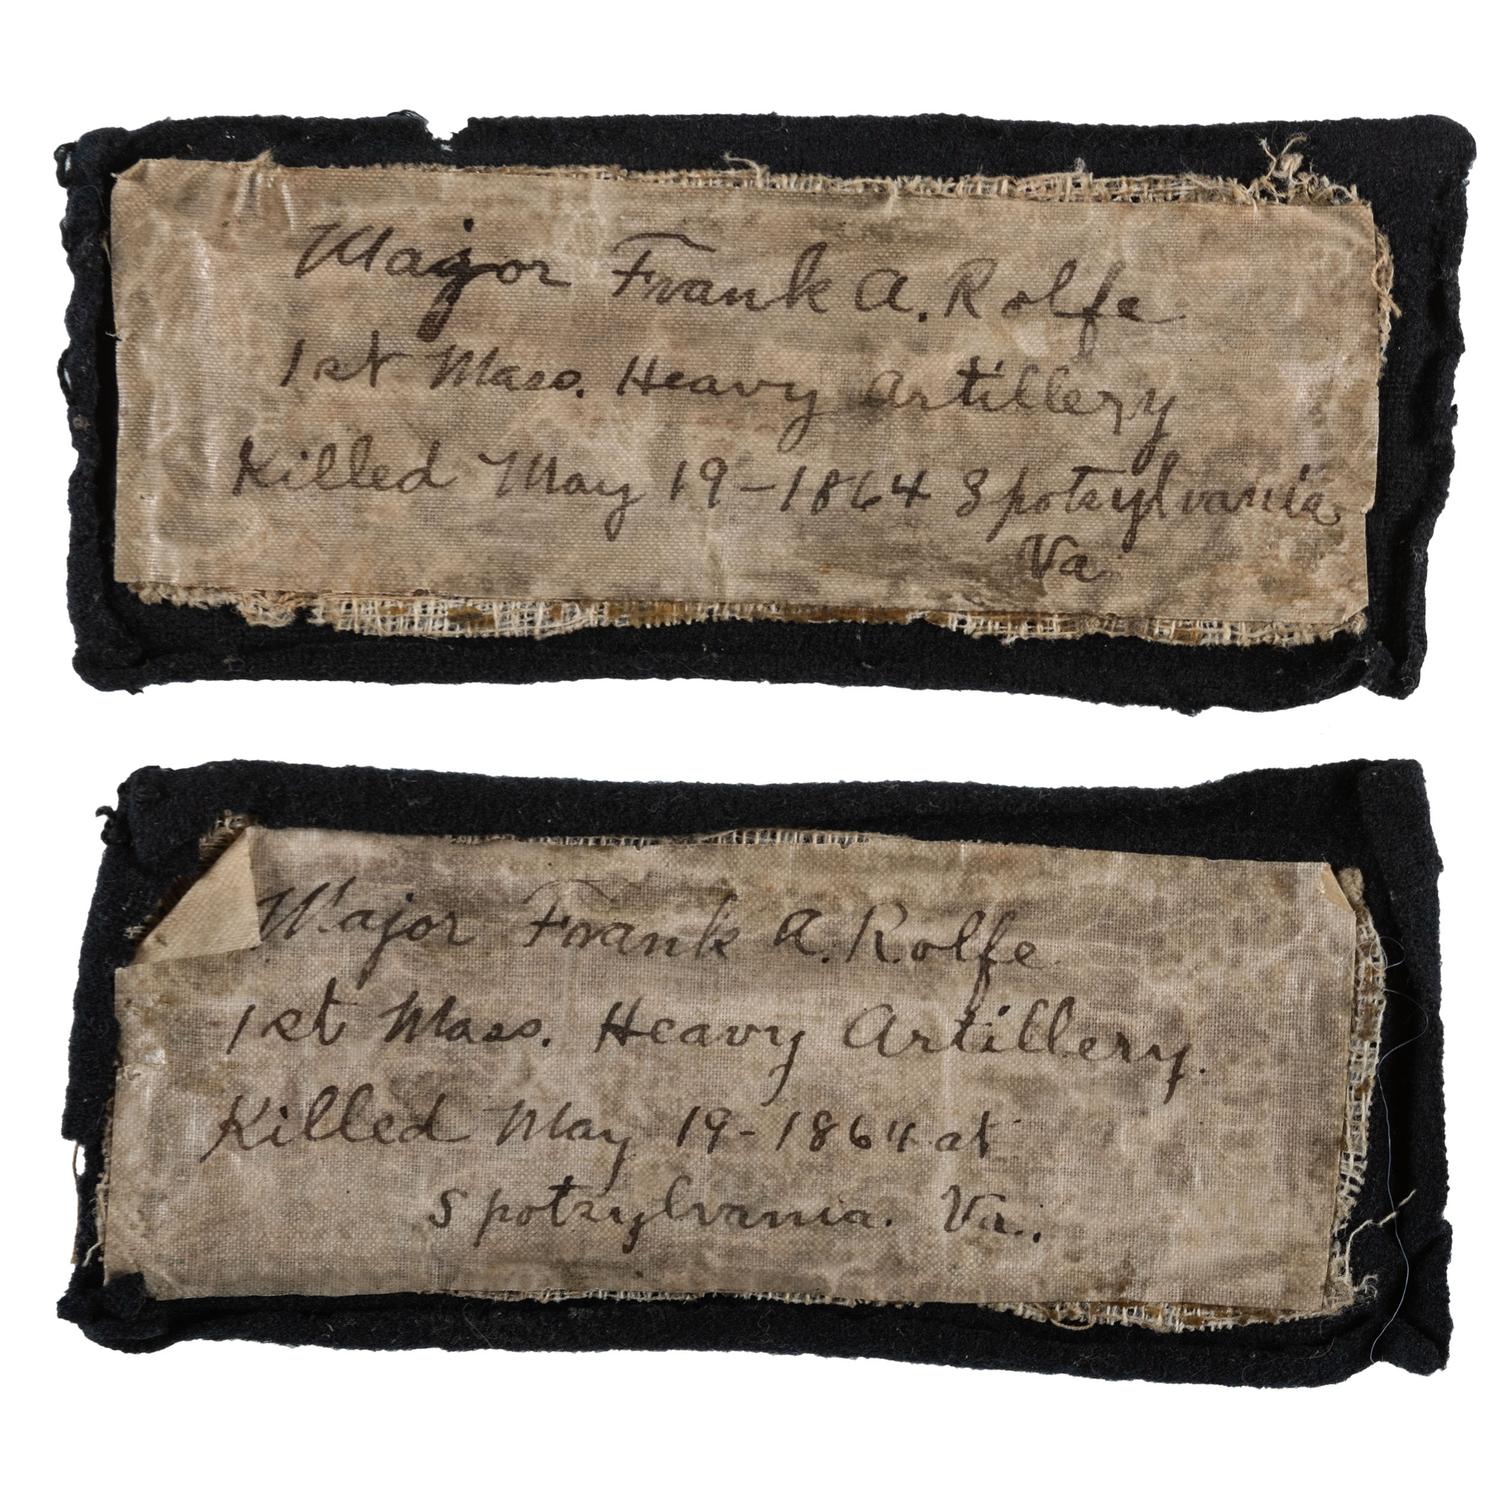 Major Frank A. Rolfe
1st Mass. Heavy Artillery
Killed May 19-1864 Spotsylvania
Va
Major Frank A. Rolfe
1st Mass. Heavy Artillery.
Killed May 19-1864 at
Spotsylvania. Va..